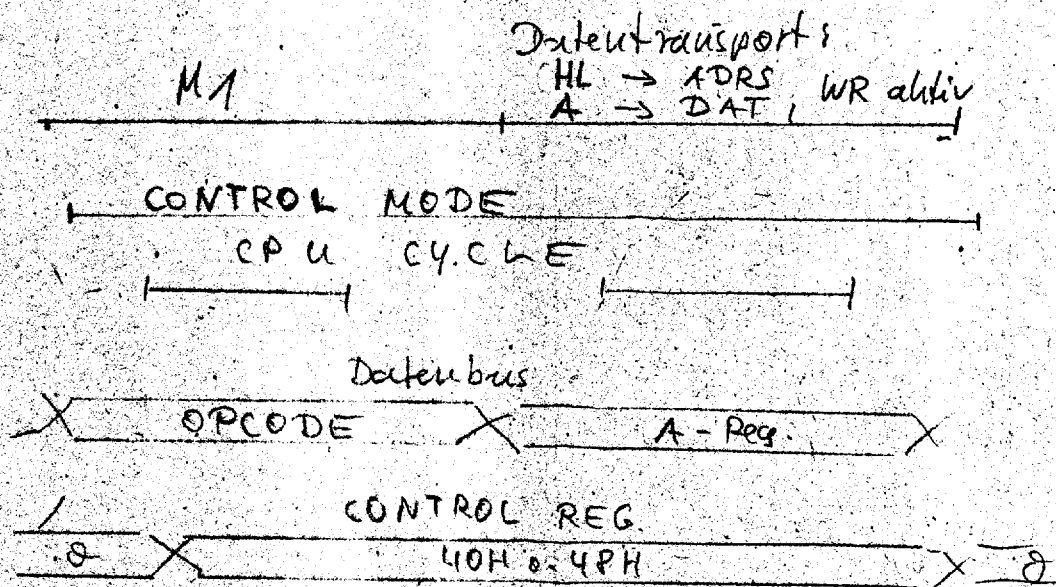 Datentransport:
M1
HL → ADRS
A → DAT, WR aktiv
CONTROL MODE
CPU CYCLE
Datenbus
OPCODE
A-Reg.
CONTROL REG.
40H o. 48H